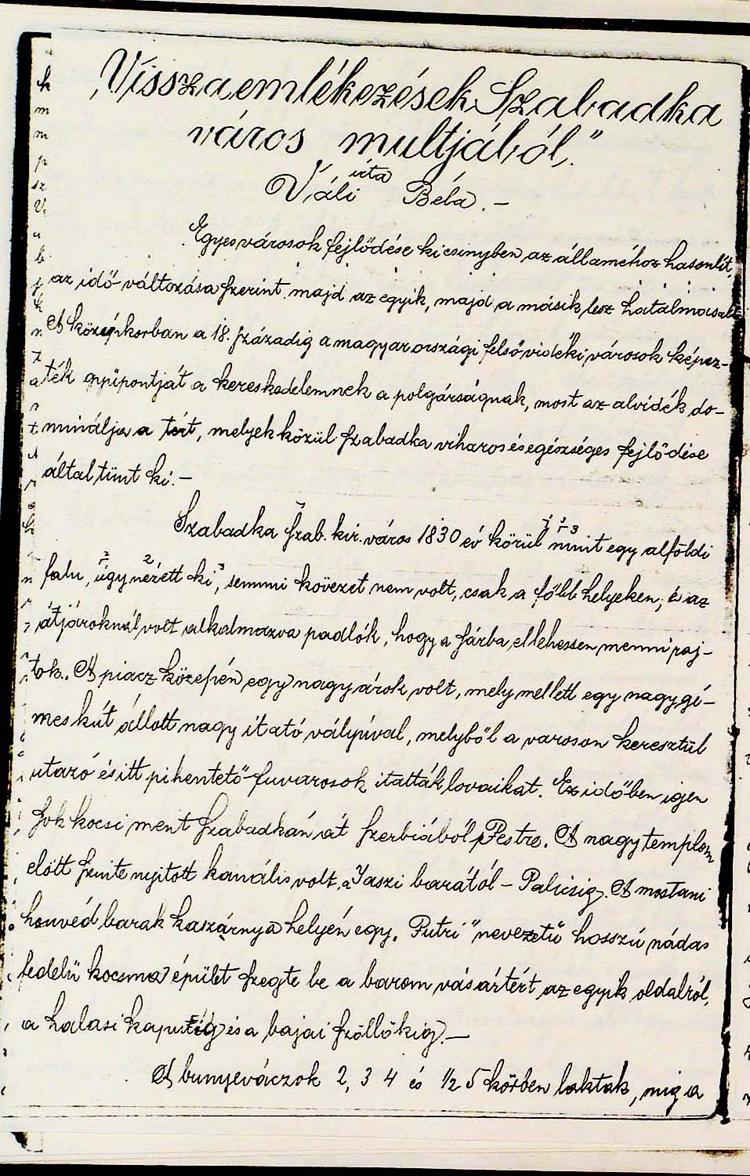 „Visszaemlékezések Szabadka
város multjából."
írta
Váli Béla. –
Egyes városok fejlődése kicsinyben az államéhoz hasonlít,
az idő változása szerint, majd az egyik, majd a másik lesz hatalmasabb
A középkorban a 18. századig a magyarországi felsővidéki városok képez-
ték gyüpontját a kereskedelemnek a polgárságnak, most az alvidék do-
minálja a tért, melyek közül szabadka viharos és egészséges fejlődése
által tünt ki. –
Szabadka szab. kir. város 1830 év körül mint egy alföldi
falu, úgy nézett ki, semmi kövezet nem volt, csak a főbb helyeken, és az
átjáróknál volt alkalmazva padlók, hogy a sárba el lehessen menni raj-
tok. A piacz közepén egy nagy árok volt, mely mellett egy nagy gé-
mes kút állott nagy itató vályúval, melyből a városon keresztül
utazó és itt pihentető fuvarosok itatták lovaikat. Ez időben igen
sok kocsi ment szabadkán át szerbiából Pestre. A nagytemplom
előtt szinte nyitott kanális volt, a Jaszi barától – Palicsig. A mostani
honvéd barak kaszárnya helyén egy „Putri" nevezetű hosszú nádas
fedelű kocsma épület szegte be a barom vásártért az egyik oldalról,
a halasi kapu és a bajai szöllőkig. –
A bunyeváczok 2, 3 4 és 1/2 5 körben laktak, mig a